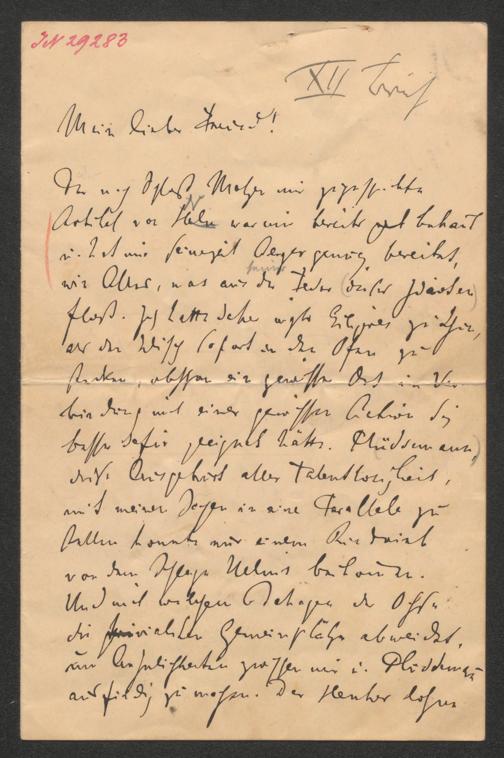 IN 29283
XII Brief
Mein lieber Freund!
Der nach Schluß Metzer mir zugeschickte
Artikel von Helm war mir bereits gut bekannt
u. hat mir seinerzeit Aerger genug bereitet,
wie Alles, was aus der Feder dieser
fließt. Ich hatte daher nichts Eiligeres zu thun,
als den Wisch sofort in den Ofen zu
stecken, obschon ein gewisser Ort in Ver
bindung mit einer gewissen Action sich
besser dafür geeignet hätte. Plüddemann,
diese Ausgeburt aller Talentlosigkeit,
mit meiner Sachen in eine Parallele zu
stellen konnte nur einem Rindvieh
von dem Schlage Helms beikommen.
Und mit welchem Behagen der Ochse
die trivialsten Gemeinplätze abweidet,
um Aehnlichkeiten zwischen mir u. Plüddemann
ausfindig zu machen. Der Henker lohne